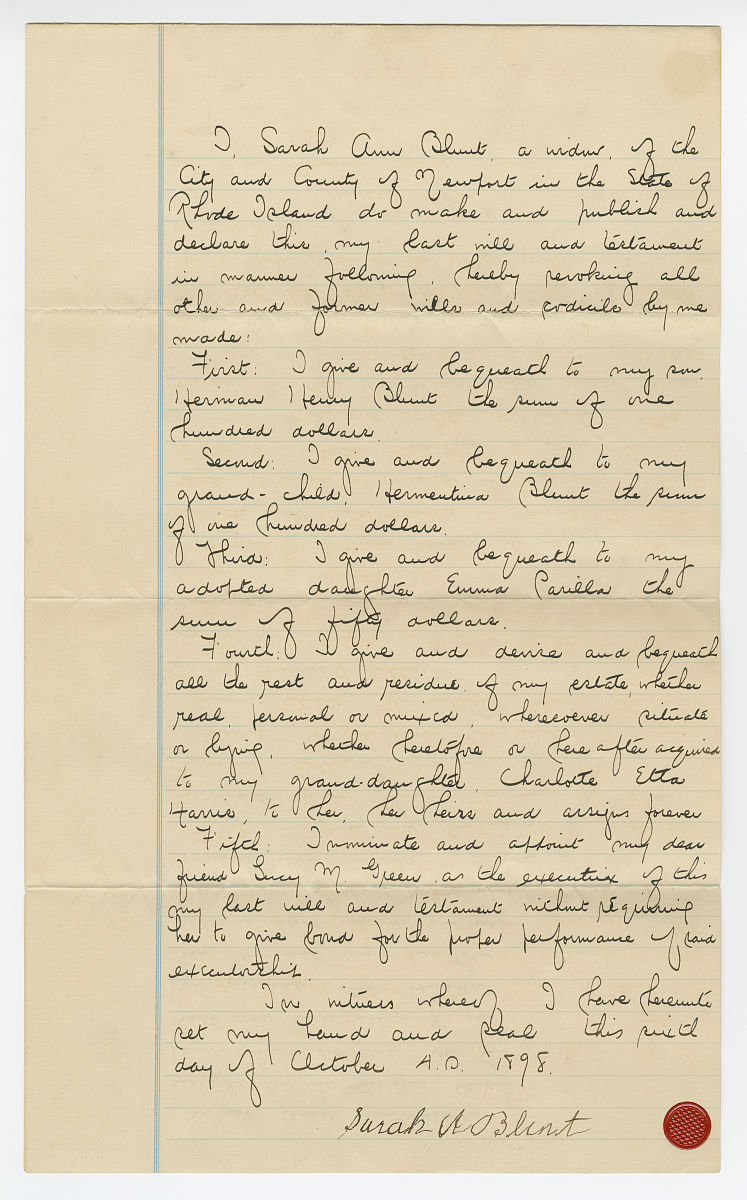 I, Sarah Ann Blunt, a widow, of the
City and County of Newport in the State of
Rhode Island do make and publish and
declare this, my last will and testament
in manner following, hereby revoking all
other and former wills and codicils by me
made:
First: I give and bequeath to my son,
Herman Henry Blunt the sum of one
hundred dollars.
Second: I give and bequeath to my
grand-child, Hermentina Blunt the sum
of one hundred dollars.
Third: I give and bequeath to my
adopted daughter Emma Parilla the
sum of fifty dollars.
Fourth: I give and devise and bequeath
all the rest and residue of my estate, whether
real, personal or mixed, wheresoever situate
or lying, whether heretofore or here after acquired
to my grand-daughter, Charlotte Etta
Harris, to her, her heirs and assigns forever
Fifth: I nominate and appoint my dear
friend Lucy M. Green as the executrix of this
my last will and testament without requiring
her to give bond for the proper performance of said
executorship.
In witness whereof, I have hereunto
set my hand and seal this sixth
day of October A.D. 1898.
Sarah A Blunt